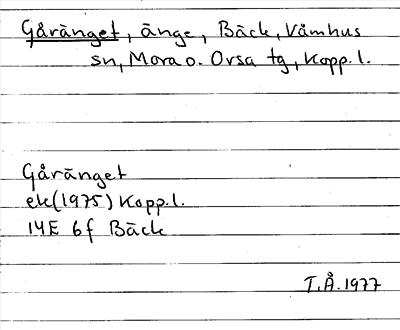 Gåränget, änge, Bäck, Våmhus
sn, Mora o. Orsa tg, Kopp.l.
Gåränget
ek(1975) Kopp.l.
14E 6f Bäck
T.Å.1977